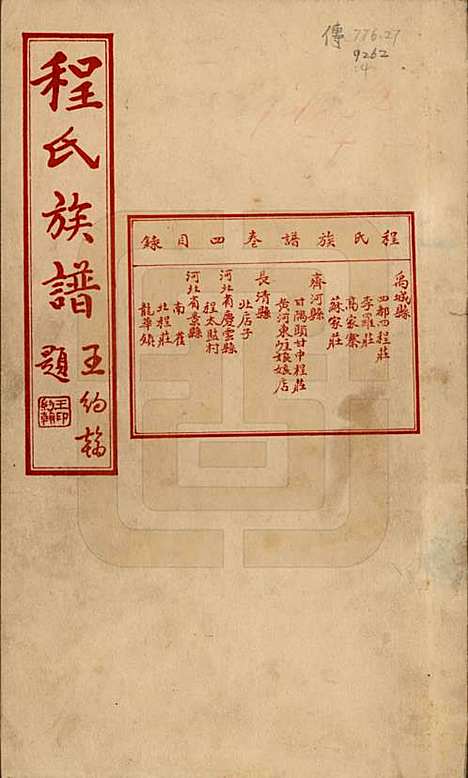 傳 776.27
9262
4
程氏族譜
王約翰
題
程氏族譜卷四目錄
禹城縣
四都四程莊
李羅莊
高家寨
蘇家莊
齊河縣
甘隅頭甘中程莊
黃河東娘娘店
長清縣
北店子
河北省慶雲縣
程太監村
河北省景縣
南崔
北程莊
龍華鎮